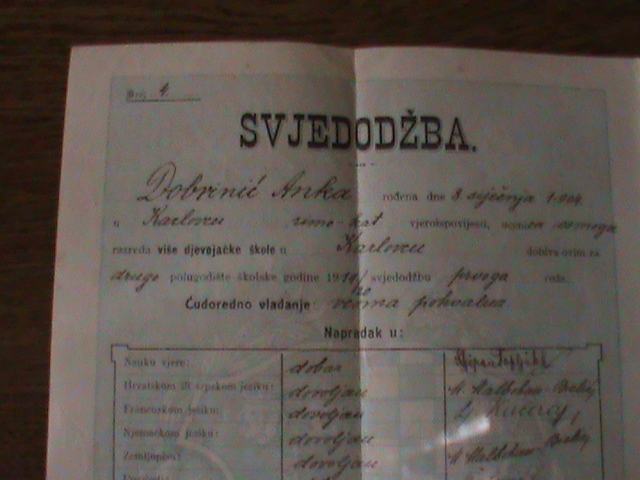 Broj 4
SVJEDODŽBA.
Dobrinić Anka rođena dne 3 siječnja 1904
u Karlovcu rimo-kat vjeroispovijesti, učenica osmoga
razreda više djevojačke škole u Karlovcu dobiva ovim za
drugo polugodište školske godine 19 svjedodžbu prvoga reda.
Ćudoredno vladanje: veoma pohvalno
Napredak u:
Nauku vjere: dobar
Hrvatskom ili srpskom jeziku: dovoljan
Francuskom jeziku: dovoljan
Njemačkom jeziku: dovoljan
Zemljopisu: dovoljan